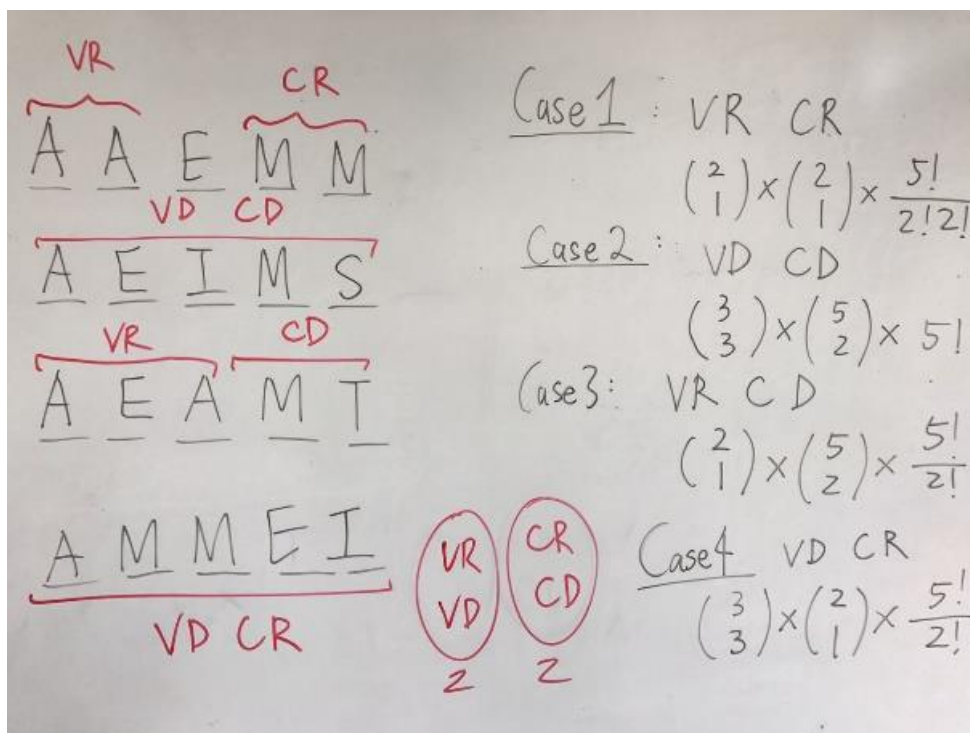 VR CR
A A E M M
VD CD
A E I M S
VR CD
A E A M T
A M M E I
VD CR
VR
VD
2
CR
CD
2
Case 1 : VR CR
(2 1) × (2 1) × 5!/2!2!
Case 2 : VD CD
(3 3) × (5 2) × 5!
Case 3: VR CD
(2 1) × (5 2) × 5!/2!
Case 4 VD CR
(3 3) × (2 1) × 5!/2!